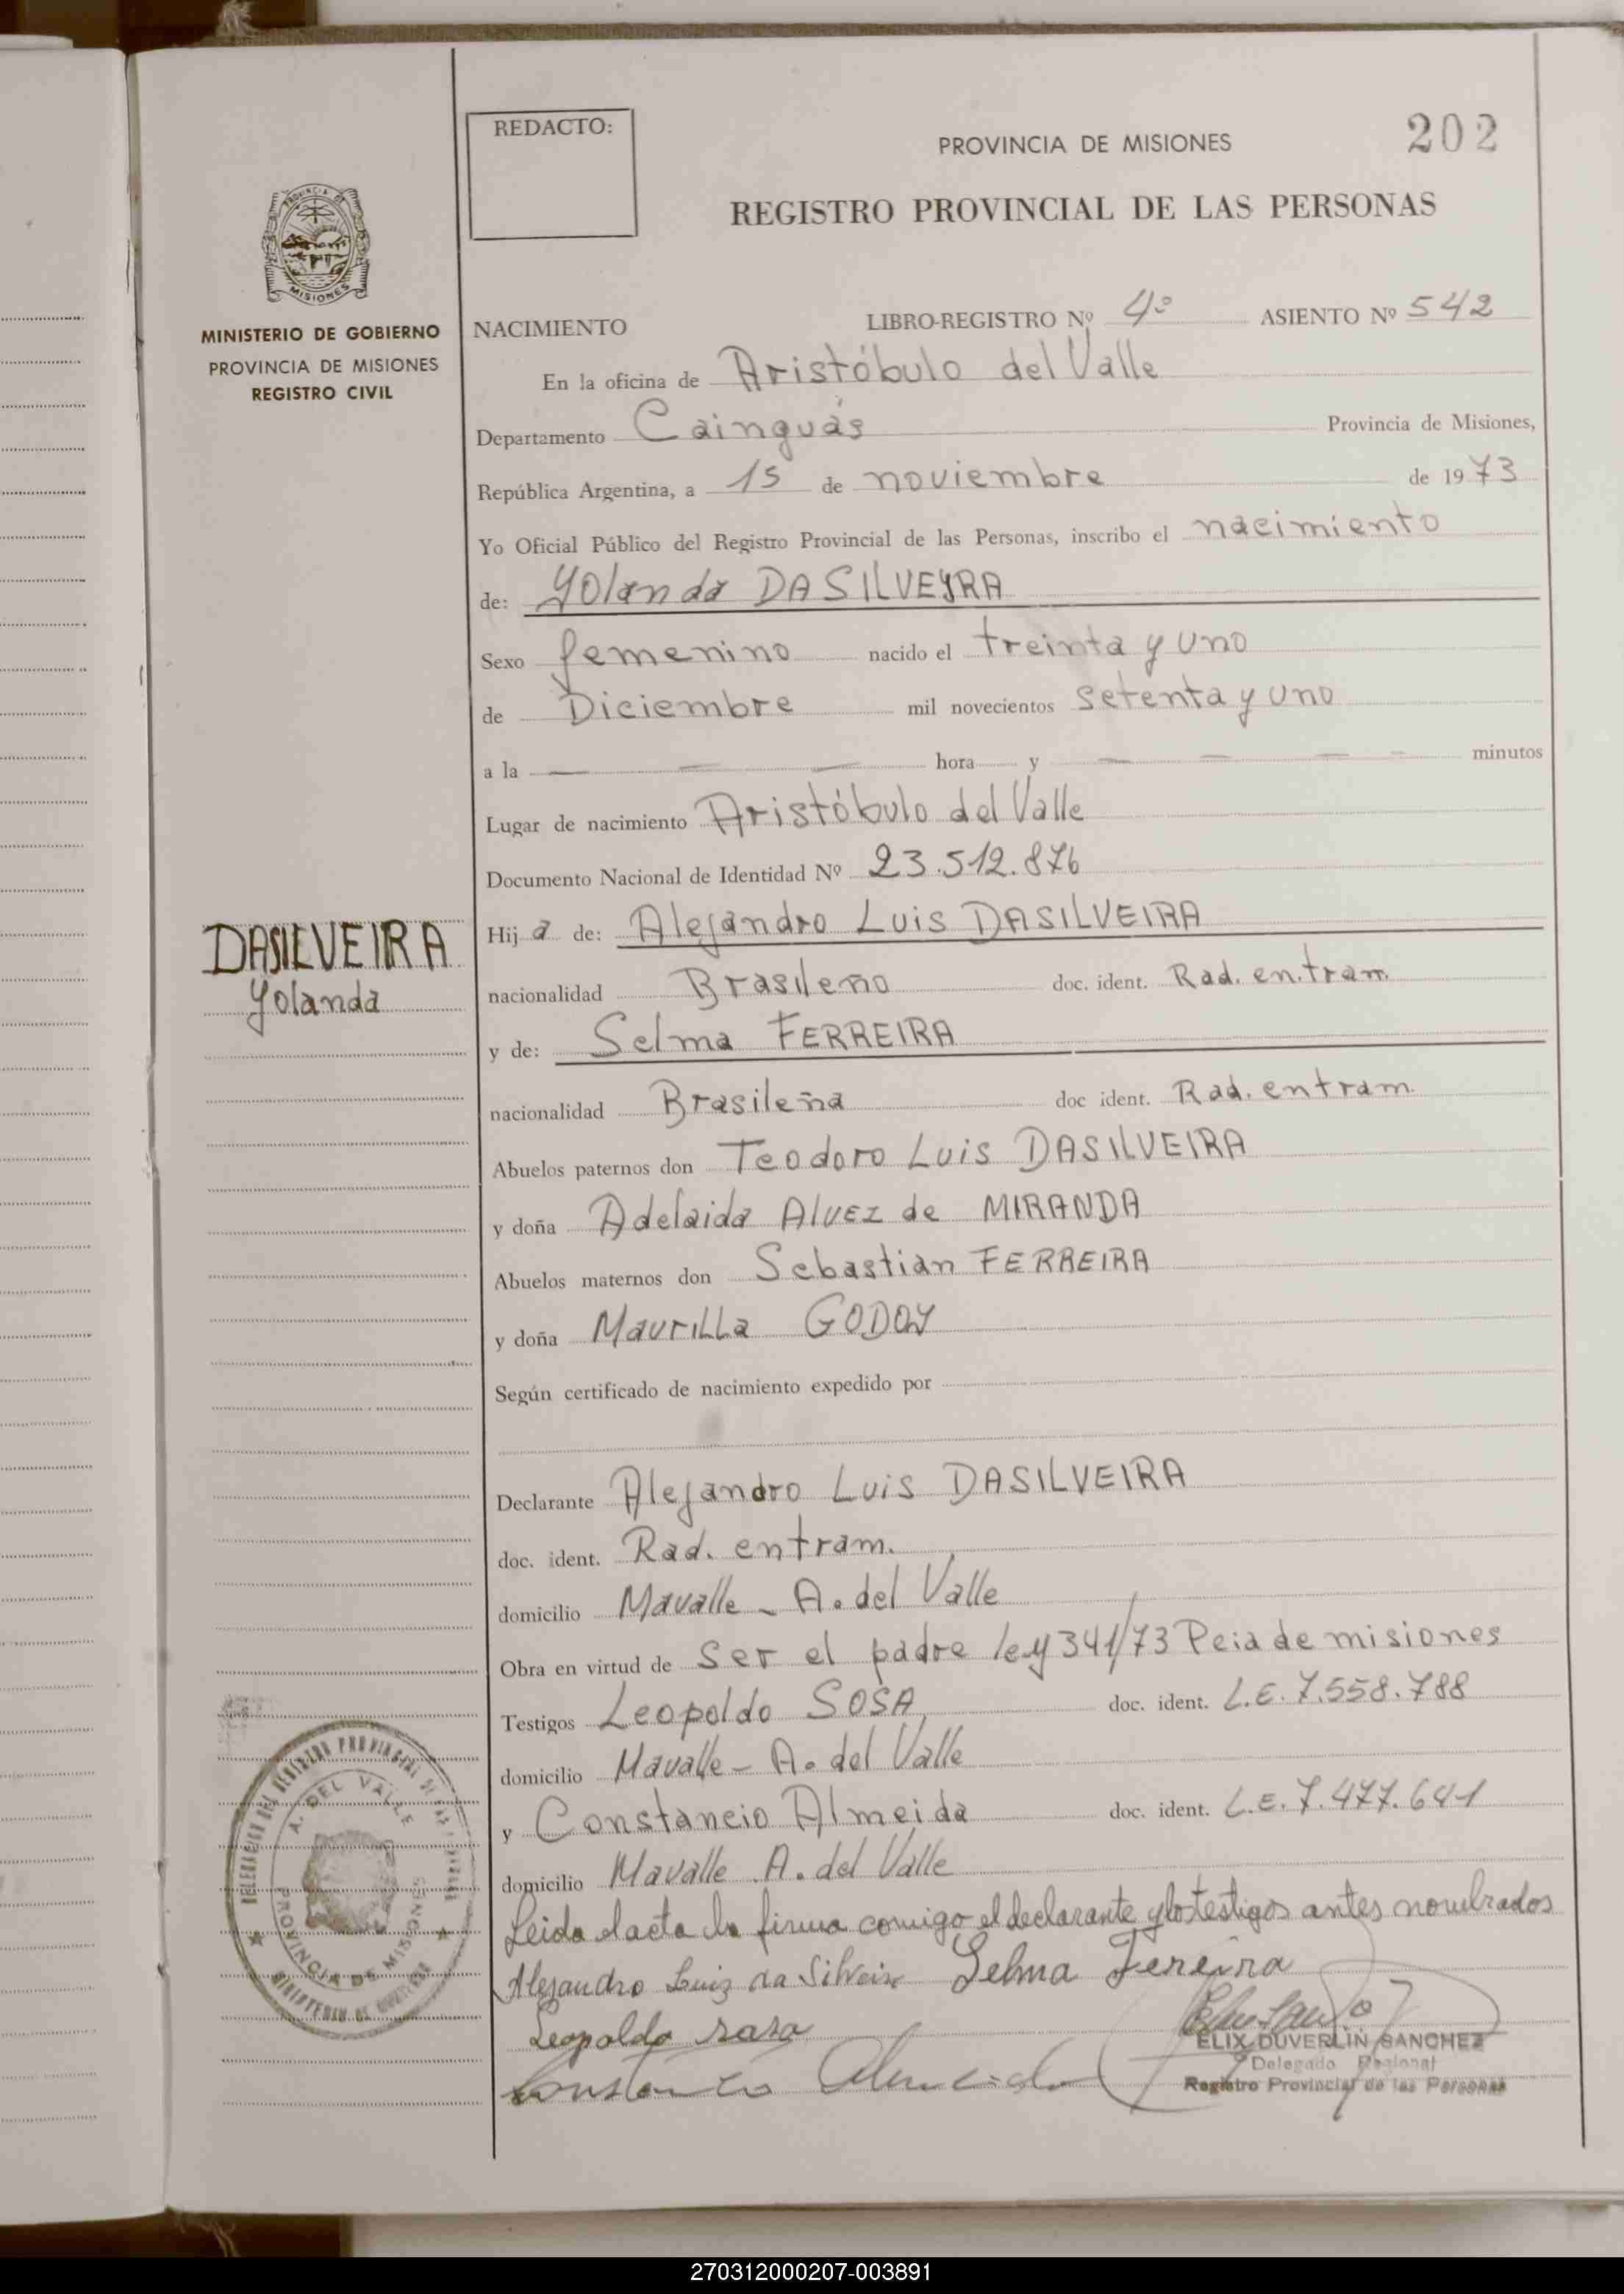 REDACTO:
PROVINCIA DE MISIONES
202
REGISTRO PROVINCIAL DE LAS PERSONAS
MISIONES
MINISTERIO DE GOBIERNO
PROVINCIA DE MISIONES
REGISTRO CIVIL
NACIMIENTO LIBRO-REGISTRO Nº 4º ASIENTO Nº 542
En la oficina de Aristóbulo del Valle
Departamento Cainguás Provincia de Misiones,
República Argentina, a 15 de noviembre de 1973
Yo Oficial Público del Registro Provincial de las Personas, inscribo el nacimiento
de: Yolanda DASILVEYRA
Sexo femenino nacido el treinta y uno
de Diciembre mil novecientos setenta y uno
a la — — — hora y — — — — minutos
Lugar de nacimiento Aristóbulo del Valle
Documento Nacional de Identidad Nº 23.512.876
DASILVEIRA
Yolanda
Hija de: Alejandro Luis DASILVEIRA
nacionalidad Brasileño doc. ident. Rad. en.tram.
y de: Selma FERREIRA
nacionalidad Brasileña doc ident. Rad. entram.
Abuelos paternos don Teodoro Luis DASILVEIRA
y doña Adelaida Alvez de MIRANDA
Abuelos maternos don Sebastian FERREIRA
y doña Maurilla GODOY
Según certificado de nacimiento expedido por
Declarante Alejandro Luis DASILVEIRA
doc. ident. Rad. entram.
domicilio Mavalle - A. del Valle
Obra en virtud de ser el padre ley 341/73 Pcia de misiones
Testigos Leopoldo SOSA doc. ident. L.E. 7.558.788
domicilio Mavalle - A. del Valle
y Constancio Almeida doc. ident. L.E. 7.477.641
domicilio Mavalle A. del Valle
Leida el acta la firma conmigo el declarante y los testigos antes nombrados
Alejandro Luiz da Silveira Selma Fereira
Leopoldo sosa
Constancio Almeida
ELIX DUVERLIN SANCHEZ
Delegado Regional
Registro Provincial de las Personas
A. DEL VALLE
PROVINCIA DE MISIONES
270312000207-003891